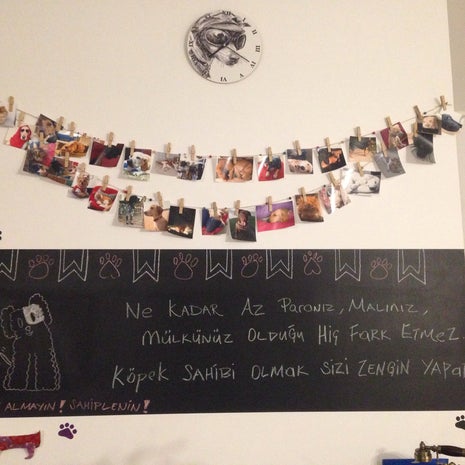 NE KADAR AZ PARANIZ, MALINIZ,
MÜLKÜNÜZ OLDUĞU HİÇ FARK ETMEZ.
KÖPEK SAHİBİ OLMAK SİZİ ZENGİN YAPAR
ALMAYIN! SAHİPLENİN!